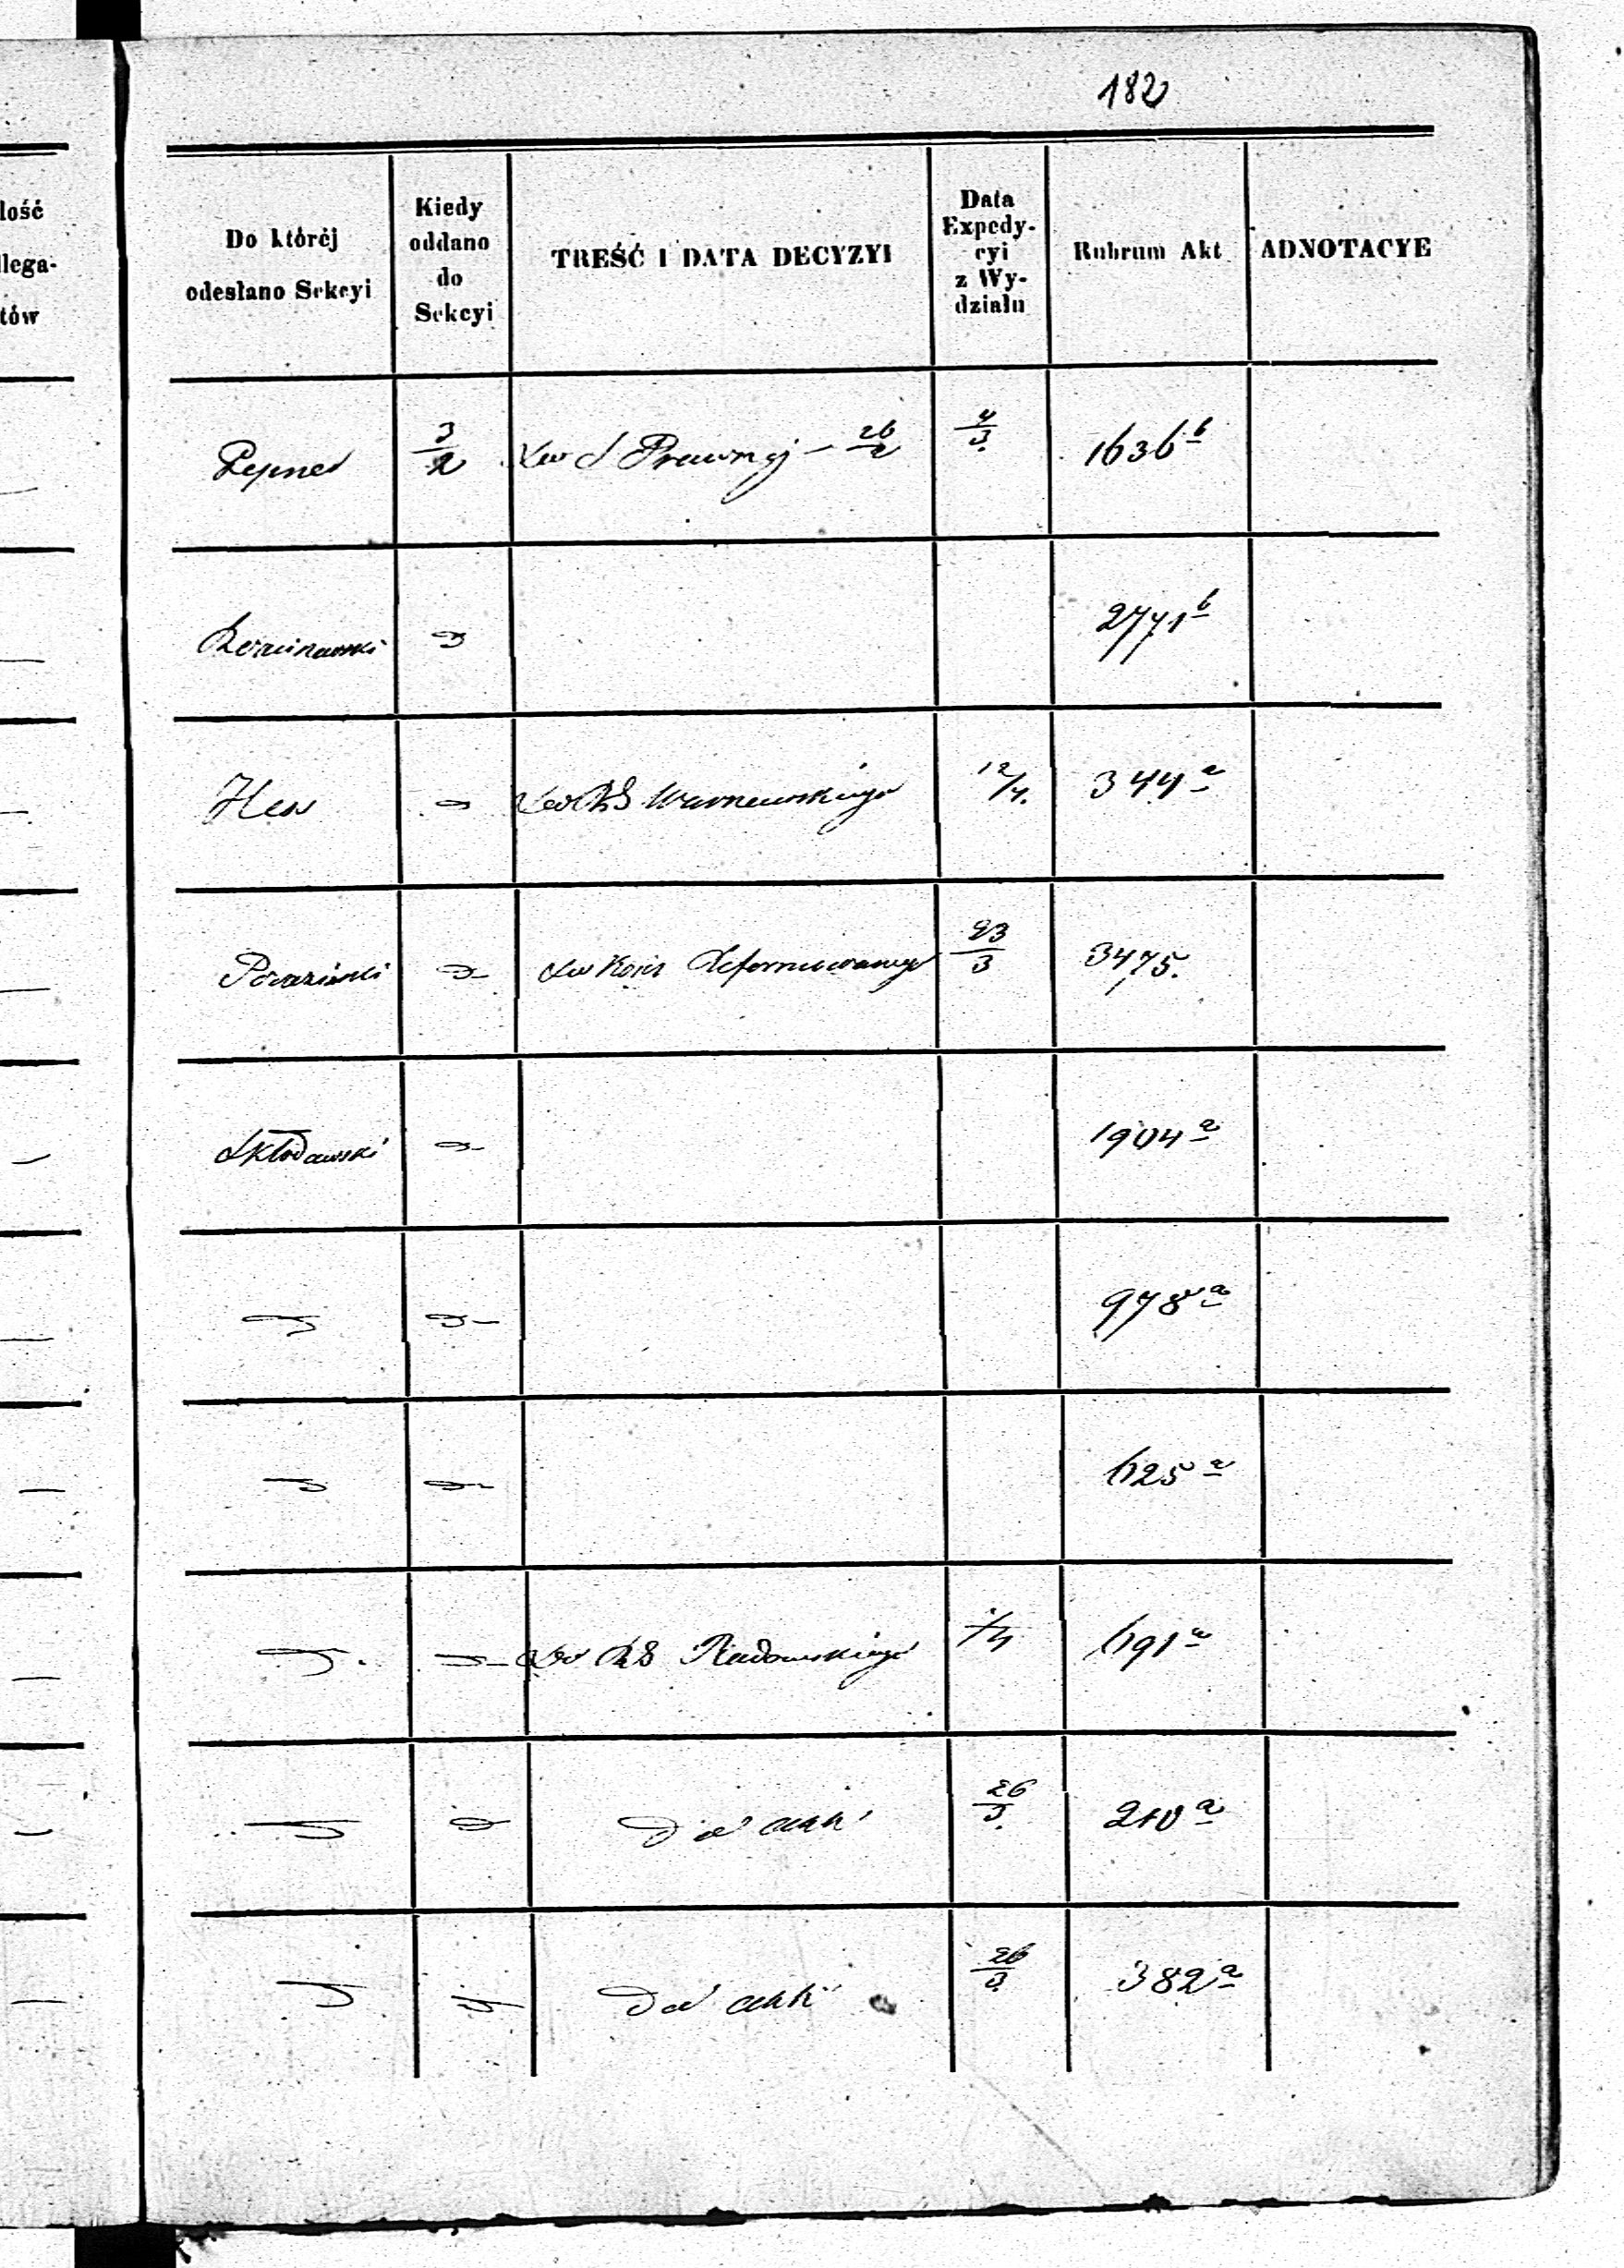 182
lość
llega-
tów
Do któréj
odesłano Sekcyi
Kiedy
oddano
do
Sekcyi
TREŚĆ I DATA DECYZYI
Data
Expedy-
cyi
z Wy-
działu
Rubrum Akt
ADNOTACYE
3/2 do S Prawnej — 26/2 4/3 1636 b
2771 b
Hen do RG Warszawskiego 12/4. 344 a
do Kons Reformowanego 23/3 3475.
Skłodawski 1904 a
978 a
625 a
do RG Radomskiego 1/4 691 a
do akt 26/3. 210 a
do akt 26/3 382 a